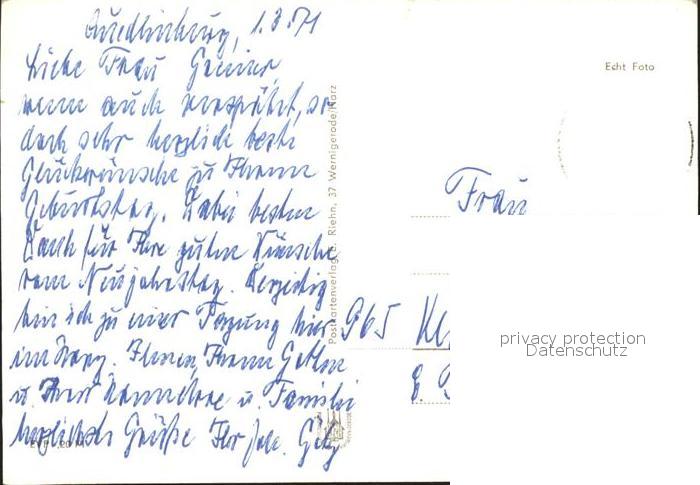 Quedlinburg, 1.3.71
Liebe Frau
wenn auch verspätet, so
doch sehr herzlich beste
Glückwünsche zu Ihrem
Geburtstag. Dabei besten
Dank für Ihre guten Wünsche
vom Neujahrstag. Derzeitig
bin ich zu einer Tagung hier
im Harz. Ihnen, Ihrem Gatten
u. Ihrer u. Familie
herzliche Grüße Ihr
Postkartenverlag u. Riehn, 37 Wernigerode/Harz
Echt Foto
Frau
965
privacy protection
Datenschutz